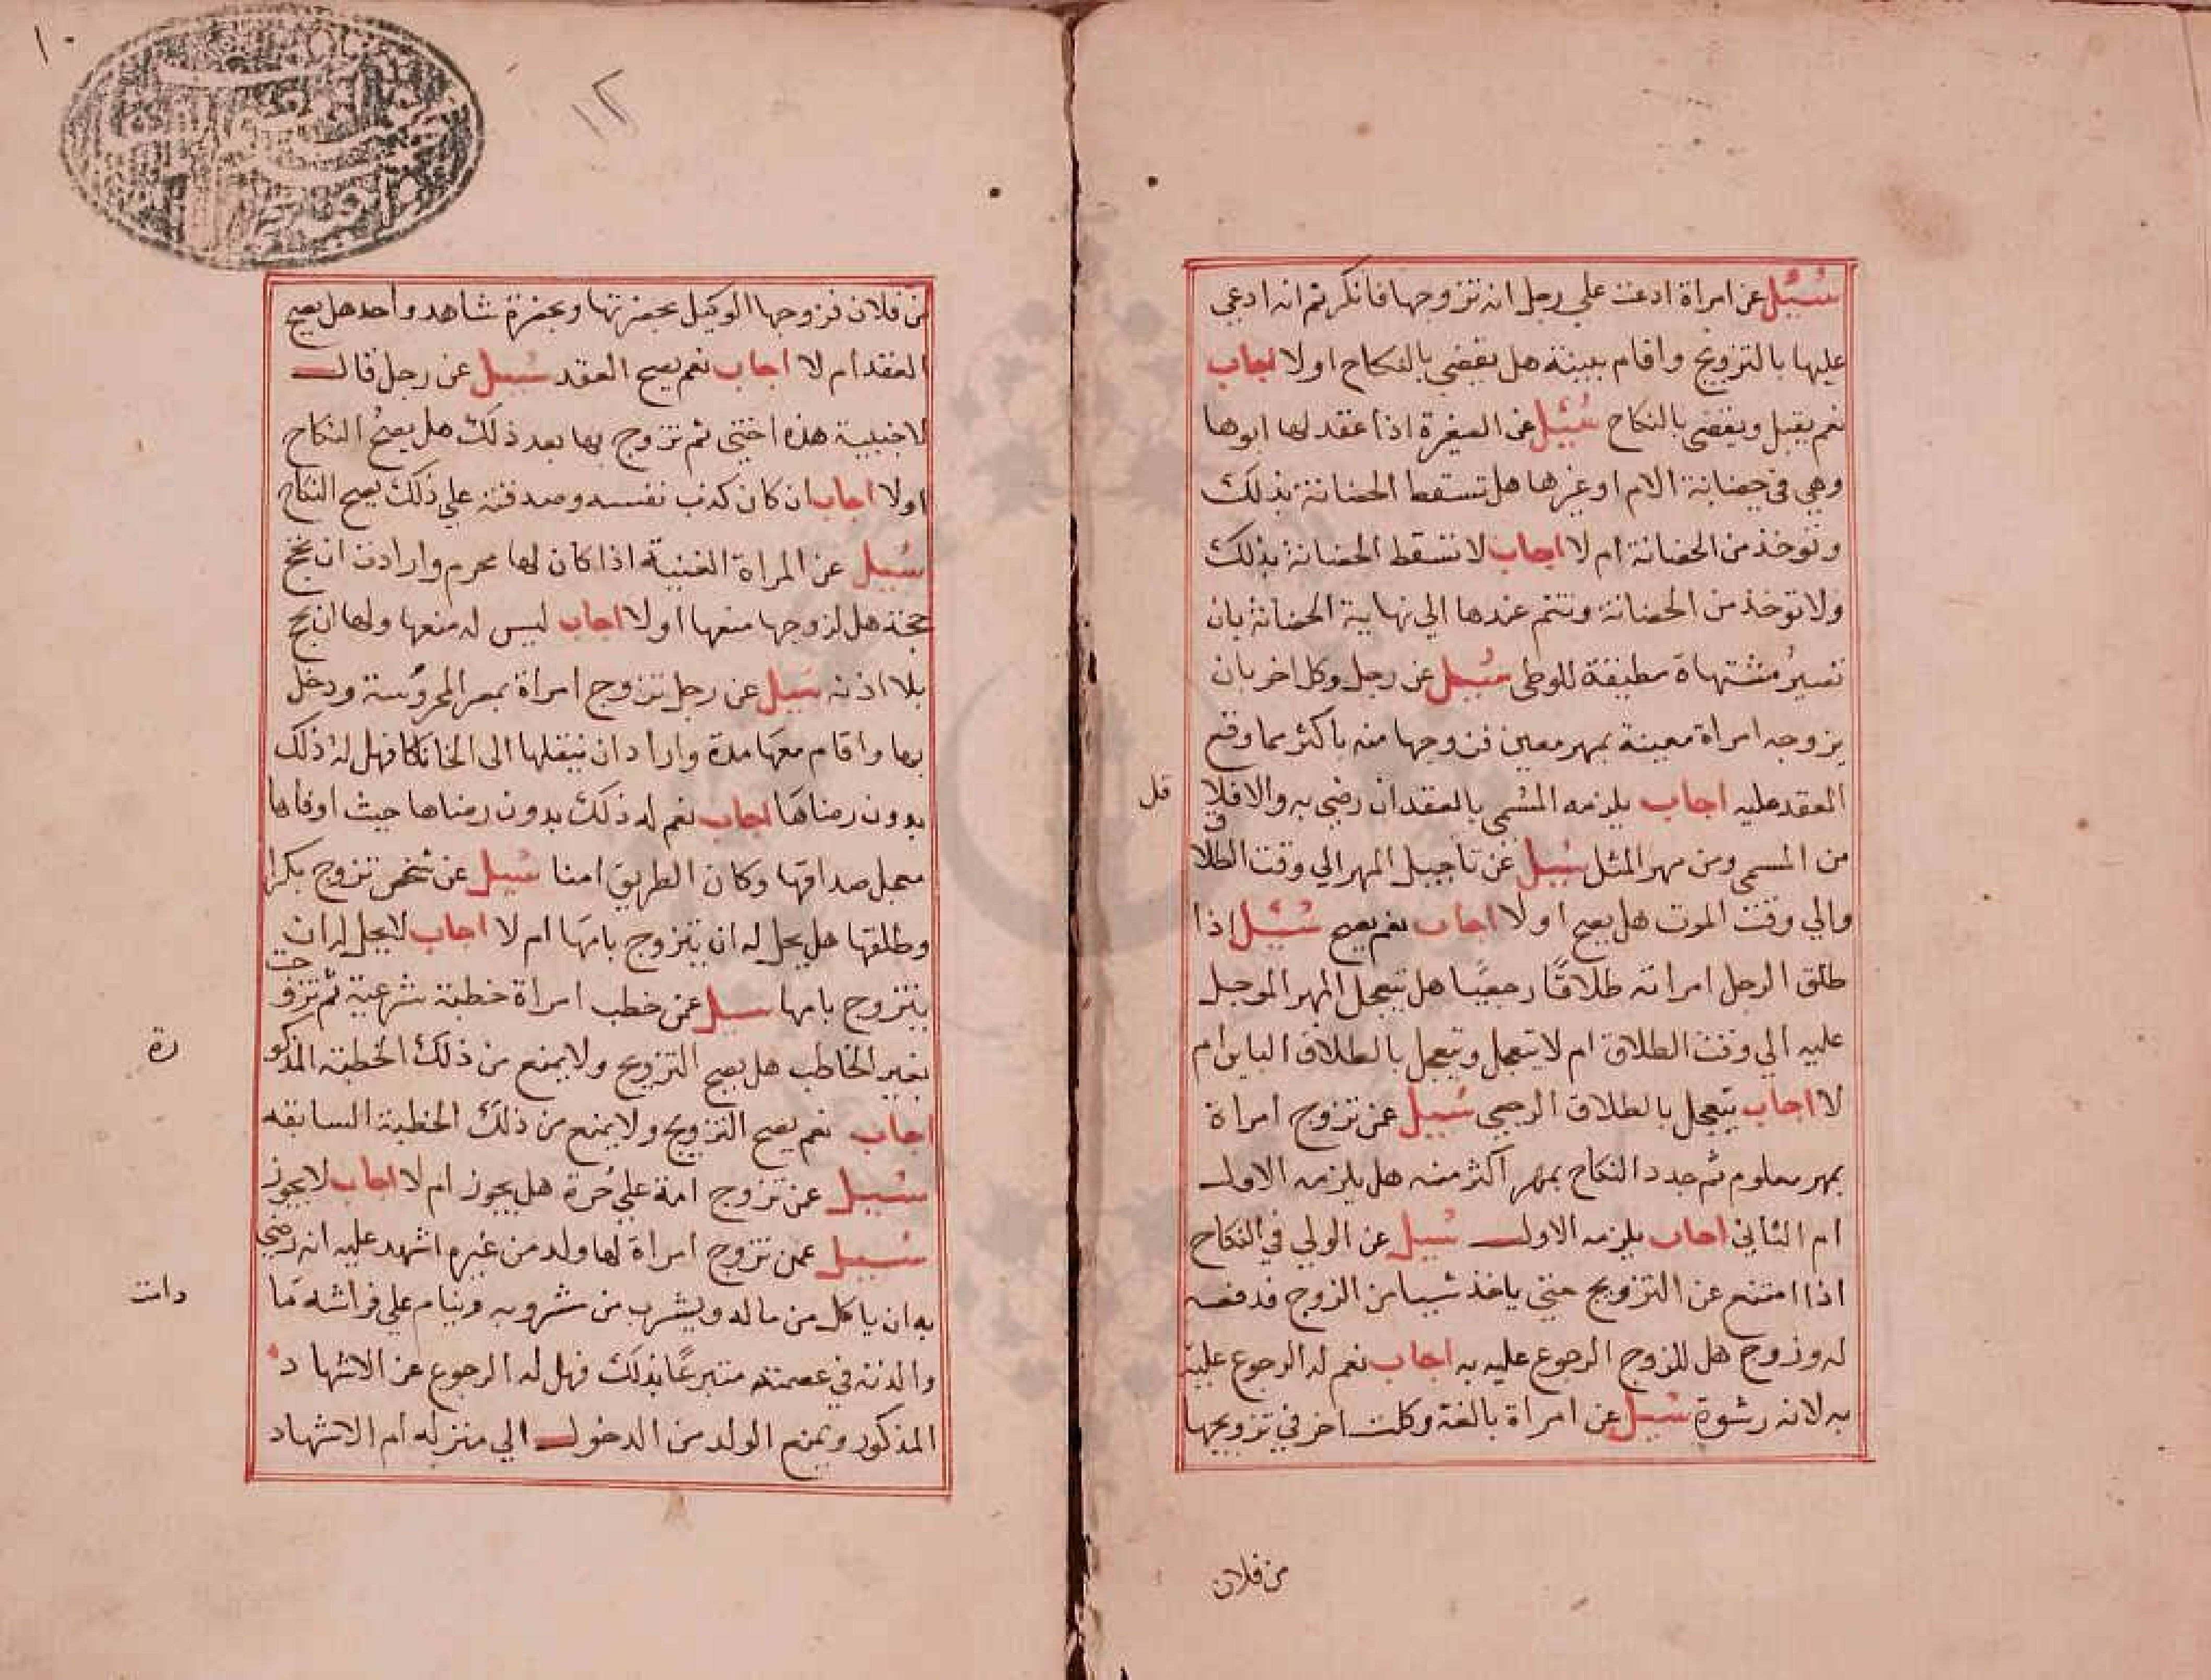 سئل عن امراة ادعت علي رجل انه تزوجها فانكر ثم انه ادعي
عليها بالتزويج واقام بينة هل يقضي بالنكاح اولا اجاب
نعم يقبل ويقضي بالنكاح سئل عن الصغيرة اذا عقد لها ابوها
وهي في حضانة الام او غيرها هل تسقط الحضانة بذلك
وتوخذ من الحضانة ام لا اجاب لا تسقط الحضانة بذلك
ولا توخذ من الحضانة وتتم عندها الي نهاية الحضانة بان
تصير مشتهاة مطيقة للوطي سيل عن رجل وكل اخر بان
يزوجه امراة معينة بمهر معين فزوجها منه باكثر مما وقع
العقد عليه اجاب يلزمه المسمي بالعقد ان رضي به والا فلا
قل
من المسمي ومن مهر المثل سيل عن تاجيل المهر الي وقت الطلاق
والي وقت الموت هل يصح اولا اجاب نعم يصح سئل اذا
طلق الرجل امراته طلاقًا رجعيًا هل يتعجل المهر الموجل
عليه الي وقت الطلاق ام لا يتعجل ويتعجل بالطلاق الباين ام
لا اجاب يتعجل بالطلاق الرجعي سيل عن تزوج امراة
بمهر معلوم ثم جدد النكاح بمهر اكثر منه هل يلزمه الاول
ام الثاني اجاب يلزمه الاول سيل عن الولي في النكاح
اذا امتنع عن التزويج حتي ياخذ شيا من الزوج فدفعه
له وزوج هل للزوج الرجوع عليه به اجاب نعم له الرجوع عليه
به لانه رشوة سيل عن امراة بالغة وكلت اخر في تزويجها
من فلان
من فلان فزوجها الوكيل بحضرتها وبحضرة شاهد واحد هل يصح
العقد ام لا اجاب نعم يصح العقد سيل عن رجل قال
لاجنبية هذه اختي ثم تزوج بها بعد ذلك هل يصح النكاح
اولا اجاب ان كان كذب نفسه وصدقته علي ذلك يصح النكاح
سيل عن المراة الغنية اذا كان لها محرم وارادت ان تحج
حجة هل لزوجها منعها اولا اجاب ليس له منعها ولها ان تحج
بلا اذنه سيل عن رجل تزوج امراة بمصر المحروسة ودخل
بها واقام معها مدة واراد ان ينقلها الى الخانكا فهل له ذلك
بدون رضاها اجاب نعم له ذلك بدون رضاها حيث اوفاها
معجل صداقها وكان الطريق امنا سيل عن شخص تزوج بكرا
وطلقها هل يحل له ان يتزوج بامها ام لا اجاب لا يحل له ان
يتزوج بامها سيل عمن خطب امراة خطبة شرعية ثم تزوجت
بغير الخاطب هل يصح التزويج ولا يمنع من ذلك الخطبة المذكو
رة
اجاب نعم يصح التزويج ولا يمنع من ذلك الخطبة السابقه
سيل عن تزوج امة علي حُرة هل يجوز ام لا اجاب لا يجوز
سيل عمن تزوج امراة لها ولد من غيره اشهد عليه انه رضي
به ان ياكل من ماله ويشرب من شروبه وينام علي فراشه مَا
دامت
والدته في عصمته متبرعًا بذلك فهل له الرجوع عن الاشهاد
المذكور ويمنع الولد من الدخول الي منزله ام الاشهاد
١٢
١٠